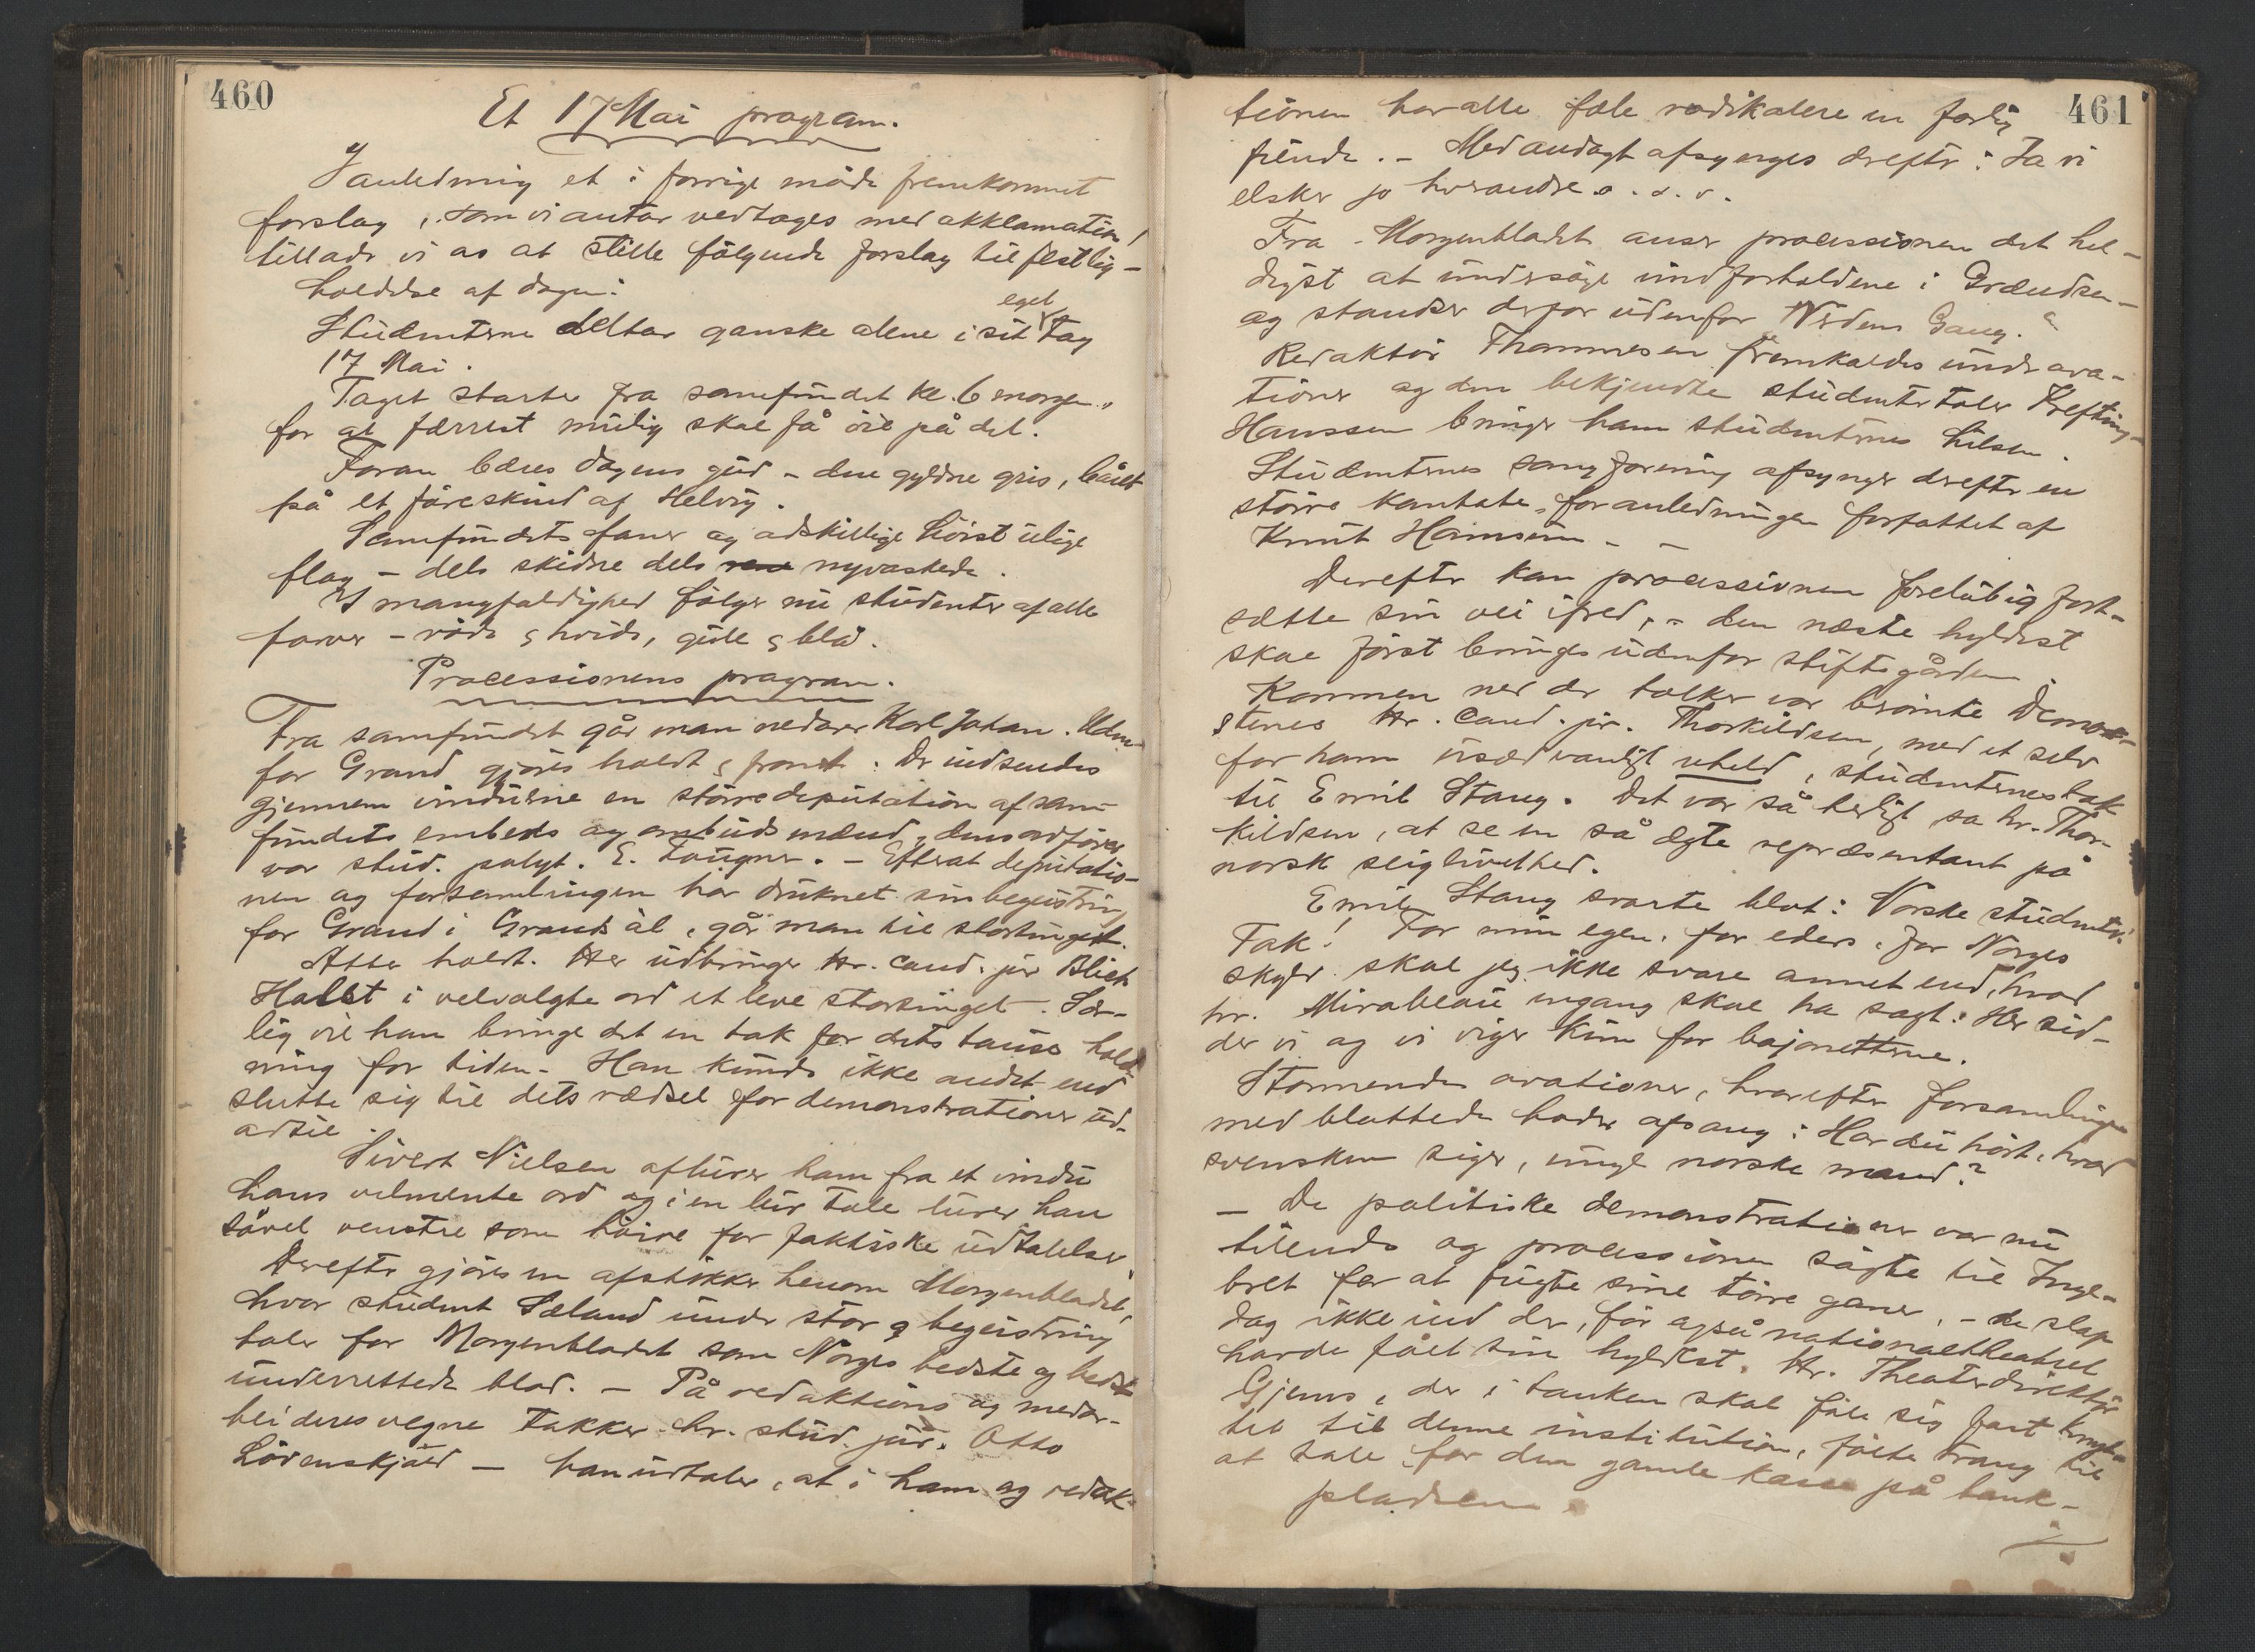 460
Et 17 Mai program.
I anledning et i forrige møde fremkommet
forslag, som vi antar vedtages med akklamation!
tillader vi os at stille følgende forslag til festlig-
holdelse af dagen:
eget
Studenterne deltar ganske alene i sit tog
17 Mai.
Toget starter fra samfundet kl. 6 morgen,
for at færrest mulig skal få øie på det.
Foran bæres dagens gud – den gyldne gris, båret
på et fåreskind af Helvig.
Samfundets faner og adskillige høist ulige
flag – dels skidne dels rene nyvaskede.
I mangfoldighed følger nu studenter af alle
farver – røde & hvide, gule & blå.
Processionens program.
Fra samfundet går man nedover Karl Johan. Uden-
for Grand gjøres holdt & front. Der indsendes
gjennem vinduerne en større deputation af sam-
fundets embeds og ombudsmænd, dens ordfører
var stud. polyt. E. Fougner. – Efterat deputatio-
nen og forsamlingen har druknet sin begeistring
for Grand i Grands øl, går man til stortinget.
Atter holdt. Her udbringer Hr. cand. jur Blich
Holst i velvalgte ord et leve stortinget. Sær-
lig vil han bringe det en tak for dets tause hold-
ning for tiden – Han kunde ikke andet end
slutte sig til dets rædsel for demonstrationer ud-
adtil.
Sivert Nielsen aflurer ham fra et vindu
hans velmente ord og i en lur tale lurer han
såvel venstre som høire for faktiske udtalelser.
Derefter gjøres en afstikker henom Morgenbladet,
hvor student Sæland under stor begeistring
taler for Morgenbladet som Norges bedste og bedst
underrettede blad. – På redaktions og medar-
beideres vegne takker hr. stud. jur. Otto
Løvenskjold – han udtaler, at i ham og redak-
461
tionen har alle fæle radikalere en farlig
fiende. – Med andagt afsynges derefter: Ja vi
elsker jo hverandre o. s. v.
Fra Morgenbladet anser processionen det hel-
digst at undersøge vindforholdene i Grændsen –
og standser derfor udenfor "Verdens Gang."
Redaktør Thommesen fremkaldes under ova-
tioner og den bekjendte studentertaler Krefting-
Hanssen bringer ham studenternes hilsen.
Studenternes sangforening afsynger derefter en
større kantate, for anledningen forfattet af
Knut Hamsun – –
Derefter kan processionen foreløbig fort-
sætte sin vei ifred, – den næste hyldest
skal først bringes udenfor stiftsgården.
Kommen ned der tolker vor berømte Demos-
stenes Hr. Cand. jur. Thorkildsen, med et selv
for ham usædvanligt uheld, studenternes tak
til Emil Stang. Det var så herligt sa hr. Thor-
kildsen, at se en så ægte repræsentant på
norsk seiglivethed.
Emil Stang svarte blot: Norske studenter!
Tak! For min egen, for eders, for Norges
skyld skal jeg ikke svare annet end, hvad
hr. Mirabeau engang skal ha sagt: Her sid-
der vi og vi viger kun for bajonetterne.
Stormende ovationer, hvorefter forsamlingen
med blottede hoder afsang: Har du hørt, hvad
svensken siger, unge norske mand?
– De politiske demonstrationer var nu
tilende og processionen søgte til Inge-
bret for at fugte sine tørre ganer, – de slap
dog ikke ind der, før også nationaltheatret
havde fået sin hyldest. Hr. Theaterdirektør
Gjems, der i tanken skal føle sig fast knyt-
tet til denne institution, følte trang til
at tale for den gamle kasse på bank-
pladsen.